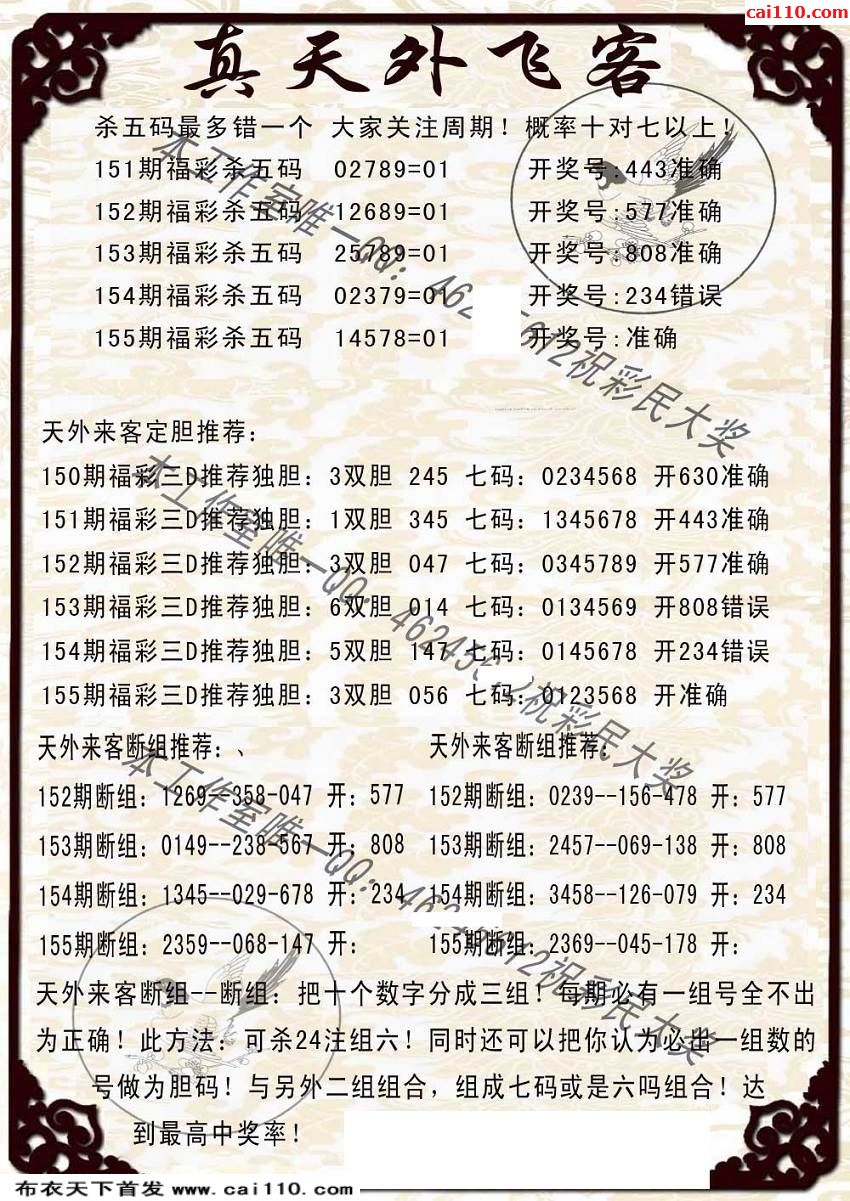 cai110.com
真天外飞客
杀五码最多错一个 大家关注周期！概率十对七以上！
151期福彩杀五码 02789=01 开奖号:443准确
152期福彩杀五码 12689=01 开奖号:577准确
153期福彩杀五码 25789=01 开奖号:808准确
154期福彩杀五码 02379=01 开奖号:234错误
155期福彩杀五码 14578=01 开奖号:准确
天外来客定胆推荐:
150期福彩三D推荐独胆: 3双胆 245 七码: 0234568 开630准确
151期福彩三D推荐独胆: 1双胆 345 七码: 1345678 开443准确
152期福彩三D推荐独胆: 3双胆 047 七码: 0345789 开577准确
153期福彩三D推荐独胆: 6双胆 014 七码: 0134569 开808错误
154期福彩三D推荐独胆: 5双胆 147 七码: 0145678 开234错误
155期福彩三D推荐独胆: 3双胆 056 七码: 0123568 开准确
天外来客断组推荐:、 天外来客断组推荐:
152期断组: 1269--358-047 开: 577 152期断组: 0239--156-478 开: 577
153期断组: 0149--238-567 开: 808 153期断组: 2457--069-138 开: 808
154期断组: 1345--029-678 开: 234 154期断组: 3458--126-079 开: 234
155期断组: 2359--068-147 开: 155期断组: 2369--045-178 开:
天外来客断组--断组: 把十个数字分成三组！每期必有一组号全不出
为正确！此方法: 可杀24注组六！同时还可以把你认为必出一组数的
号做为胆码！与另外二组组合，组成七码或是六吗组合！达
到最高中奖率！
本工作室唯一QQ: 祝彩民大奖
本工作室唯一QQ: 祝彩民大奖
本工作室唯一QQ: 祝彩民大奖
布衣天下首发 www.cai110.com